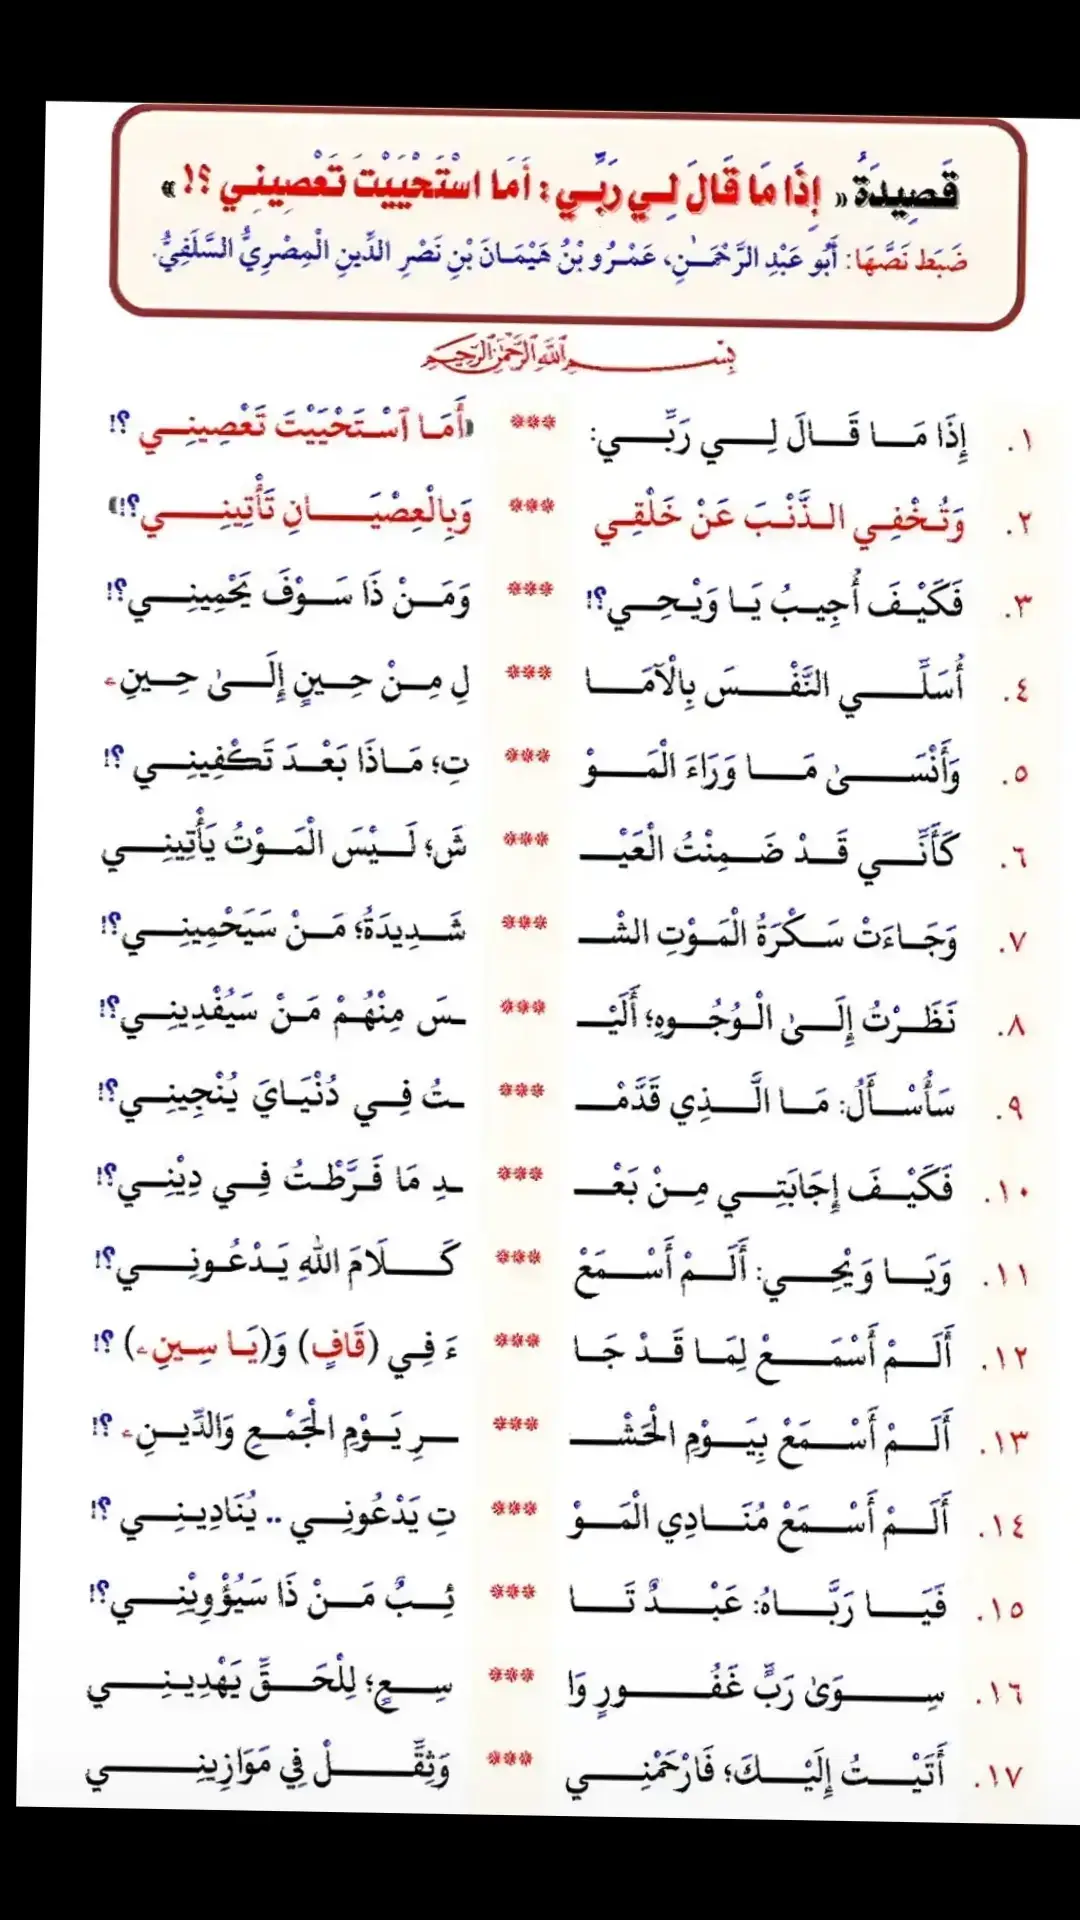 قَصِيدَةُ « إِذَا مَا قَالَ لِي رَبِّي : أَمَا اسْتَحْيَيْتَ تَعْصِينِي ؟! »
ضَبَطَ نَصَّهَا: أَبُو عَبْدِ الرَّحْمَـٰنِ، عَمْرُو بْنُ هَيْمَانَ بْنِ نَصْرِ الدِّينِ الْمِصْرِيُّ السَّلَفِيُّ.
بِسْمِ اللَّهِ الرَّحْمَٰنِ الرَّحِيمِ
١. إِذَا مَا قَالَ لِي رَبِّي: *** «أَمَا ٱسْتَحْيَيْتَ تَعْصِينِي ؟!
٢. وَتُخْفِي الذَّنْبَ عَنْ خَلْقِي *** وَبِالْعِصْيَانِ تَأْتِينِي؟!»
٣. فَكَيْفَ أُجِيبُ يَا وَيْحِي؟! *** وَمَنْ ذَا سَوْفَ يَحْمِينِي؟!
٤. أُسَلِّي النَّفْسَ بِالْآمَا *** لِ مِنْ حِينٍ إِلَىٰ حِينِے
٥. وَأَنْسَىٰ مَا وَرَاءَ الْمَوْ *** تِ؛ مَاذَا بَعْدَ تَكْفِينِي ؟!
٦. كَأَنِّي قَدْ ضَمِنْتُ الْعَيْـ *** شَ؛ لَيْسَ الْمَوْتُ يَأْتِينِي
٧. وَجَاءَتْ سَكْرَةُ الْمَوْتِ الشْـ *** شَدِيدَةُ؛ مَنْ سَيَحْمِينِي؟!
٨. نَظَرْتُ إِلَىٰ الْوُجُوهِ؛ أَلَيْـ *** ـسَ مِنْهُمْ مَنْ سَيُفْدِينِي؟!
٩. سَأُسْأَلُ: مَا الَّذِي قَدَّمْـ *** ـتُ فِي دُنْيَايَ يُنْجِينِي؟!
١٠. فَكَيْفَ إِجَابَتِي مِنْ بَعْـ *** ـدِ مَا فَرَّطْتُ فِي دِيْنِي؟!
١١. وَيَا وَيْحِي: أَلَمْ أَسْمَعْ *** كَلَامَ اللهِ يَدْعُونِي؟!
١٢. أَلَمْ أَسْمَعْ لِمَا قَدْ جَا *** ءَ فِي (قَافٍ) وَ(يَا سِينِے) ؟!
١٣. أَلَمْ أَسْمَعْ بِيَوْمِ الْحَشْـ *** ـرِ يَوْمِ الْجَمْعِ وَالدِّينِے ؟!
١٤. أَلَمْ أَسْمَعْ مُنَادِي الْمَوْ *** تِ يَدْعُونِي .. يُنَادِينِي ؟!
١٥. فَيَا رَبَّاهُ: عَبْدٌ تَا *** ئِبٌ مَنْ ذَا سَيُؤْوِيْنِي؟!
١٦. سِوَىٰ رَبٍّ غَفُورٍ وَا *** سِعٍ؛ لِلْحَقِّ يَهْدِينِي
١٧. أَتَيْتُ إِلَيْكَ؛ فَارْحَمْنِي *** وَثِقِّلْ فِي مَوَازِينِي